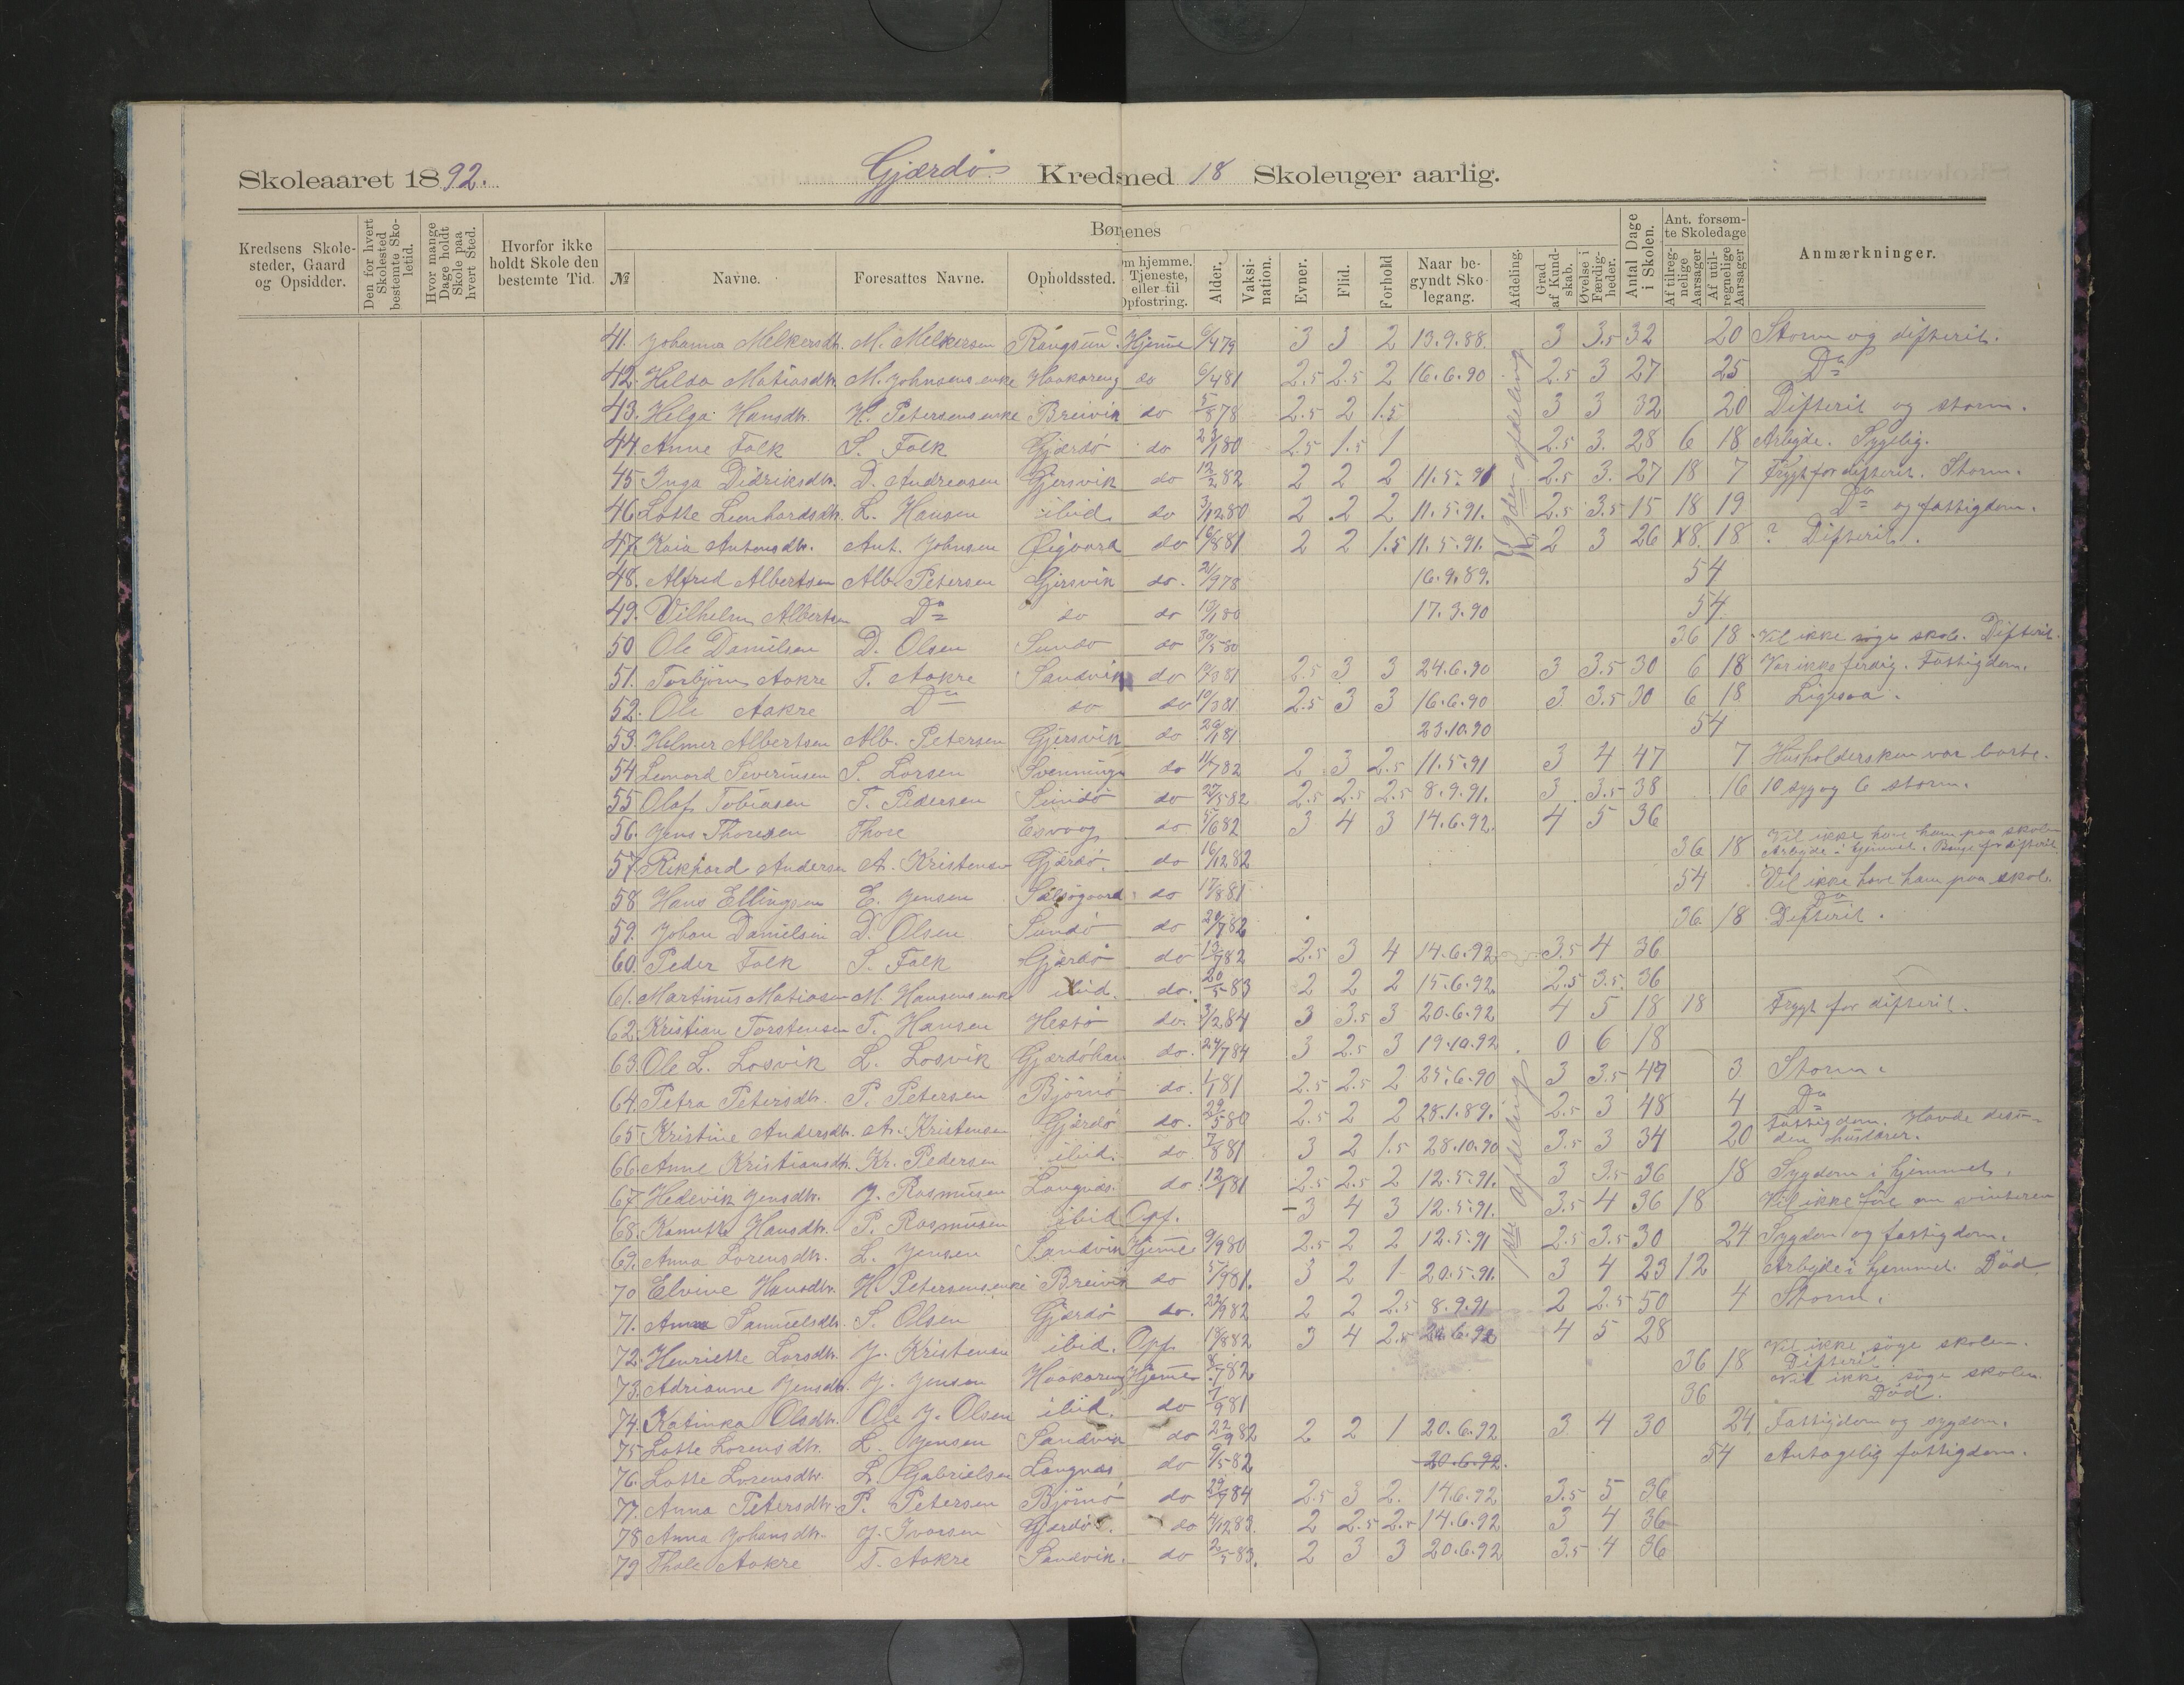 Skoleaaret 1892.
Gjærdø Kreds med 18 Skoleuger aarlig.
Kredsens Skolesteder, Gaard og Opsidder. | Den for hvert Skolested bestemte Skoletid. | Hvor mange Dage holdt Skole paa hvert Sted. | Hvorfor ikke holdt Skole den bestemte Tid. | Børnenes | Antal Dage i Skolen. | Ant. forsømte Skoledage | Anmærkninger.
№ | Navne. | Foresattes Navne. | Opholdssted. | Om hjemme. Tjeneste, eller til Opfostring. | Alder. | Vaksination. | Evner. | Flid. | Forhold | Naar begyndt Skolegang. | Afdeling. | Grad af Kundskab. | Øvelse i Færdigheder. | Af tilregnelige Aarsager | Af utilregnelige Aarsager
41. Johanna Melkersdtr. M. Melkersen Rangsund. Hjemme 6/4 79 3 3 2 13.9.88. 3 3.5 32 20 Storm og difterit.
42. Hilda Matiasdtr. M. Johnsens enke Haakøreng do 6/4 81 2.5 2.5 2 16.6.90 2.5 3 27 25 Do
43. Helga Hansdtr. H. Petersens enke Breivik do 5/8 78 2.5 2 1.5 3 3 32 20 Difterit og storm.
44. Anne Falk S. Falk Gjærdø do 2.5 1.5 1 2.5 3. 28 6 18 Arbejde. Sygelig.
45 Inga Didriksdtr. D. Andreasen Gjersvik do 12/2 82 2 2 2 11.5.91 2.5 3. 27 18 7 Frygt for difterit. Storm.
46 Lotte Leonhardsdtr. L. Hansen ibid. do 3/12 80 2 2 2 11.5.91. 2.5 3.5 15 18 19 Do og fattigdom.
47. Kaia Antonsdtr. Ant. Johnsen Øigaard do 16/8 81 2 2 1.5 11.5.91. 2 3 26 18. 18 ? Difterit.
48. Alfred Albertsen Alb. Petersen Gjersvik do. 21/9 78 16.9.89. 54
49. Vilhelm Albertsen Do do do 13/1 80 17.3.90 54
50 Ole Danielsen D. Olsen Sundø do 30/5 80 36 18 Vil ikke søge skole. Difterit.
51. Torbjørn Aakre T. Aakre Sandvik do 10/3 81 2.5 3 3 24.6.90 3 3.5 30 6 18 Var ikke ferdig. Fattigdom.
52. Ole Aakre Do do do 10/3 81 2.5 3 3 16.6.90 3 3.5 30 6 18 Ligesaa.
53. Hilmer Albertsen Alb. Petersen Gjersvik do 29/1 81 23.10.90 54
54 Leonard Severinsen S. Larsen Svenninge do 11/7 82 2 3 2.5 11.5.91 3 4 47 7 Husholdersken var borte.
55 Olaf Tobiasen T. Pedersen Sundø do 27/5 82 2.5 2.5 2.5 8.9.91. 3 3.5 38 16 10 syg og 6 storm.
56. Jens Thoresen Thore Esvaag do 5/6 82 3 4 3 14.6.92. 4 5 36
57. Rikhard Andersen A. Kristensen Gjærdø. do 16/12 82 36 18 Vil ikke have ham paa skolen Arbejde i hjemmet. Bange for difterit.
58 Hans Ellingsen E. Jensen do 17/8 81 54 Vil ikke have ham paa skole.
59. Johan Danielsen D. Olsen Sundø do 29/7 82 36 18 Do Difterit.
60. Peder Falk S. Falk Gjærdø do 13/7 82 2.5 3 4 14.6.92 3.5 4 36
61. Martinus Matiasen M. Hansens enke ibid. do. 20/5 83 2 2 2 15.6.92 2.5 3.5 36
62. Kristian Torstensen T. Hansen Hestø do. 3/2 84 3 3.5 3 20.6.92 4 5 18 18 Frygt for difterit.
63. Ole L. Losvik L. Losvik do. 24/7 84 3 2.5 3 19.10.92 0 6 18
64. Petra Petersdtr. P. Petersen Bjørnø do. 1/1 81 2.5 2.5 2 25.6.90 3 3.5 49 3 Storm.
65 Kristine Andersdtr. A. Kristensen Gjærdø do. 29/5 80 2.5 2 2 28.1.89. 2.5 3 48 4 Do
66. Anne Kristiansdtr. Kr. Pedersen ibid. do 7/8 81 3 2 1.5 28.10.90 3.5 3 34 20 Fattigdom. Havde desuden huslærer.
67. Hedevik Jensdtr. J. Rasmusen Langnæs. do. 12/1 81 2.5 2.5 2 12.5.91. 3 3.5 36 18 Sygdom i hjemmet.
68. Hansdtr. P. Rasmusen ibid Opf. -3 4 3 12.5.91. 3.5 4 36 18 Vil ikke fare om vinteren
69. Anna Lorensdtr. L. Jensen Sandvik Hjemme 9/9 80 2.5 2 2 12.5.91 2.5 3.5 30 24 Sygdom og fattigdom.
70 Elvine Hansdtr. H. Petersens enke Breivik do 5/9 81. 3 2 1 20.5.91. 3 4 23 12 Arbejde i hjemmet. Død
71. Anna Samuelsdtr. S. Olsen Gjærdø do. 22/9 82 2 2 2.5 8.9.91 2 2.5 50 4 Storm.
72. Henriette Larsdtr. J. Kristensen ibid. Opf. 18/8 82 3 4 2.5 24.6.92 4 5 28
73. Adrianne Jensdtr. J. Jensen Haakøreng Hjemme 8/7 82 36 18 Vil ikke søge skolen. Difterit.
74. Katinka Olsdtr. Ole J. Olsen ibid. do 7/9 81 36 Vil ikke søge skolen. Død.
75 Lotte Lorensdtr. L. Jensen Sandvik do 22/9 82 2 2 1 20.6.92 3 4 30 24 Fattigdom og sygdom.
76. Lotte Lorensdtr. L. Gabrielsen Langnæs do 9/5 82 20.6.92. 54 Antagelig fattigdom.
77. Anna Petersdtr. P. Petersen Bjørnø do 29/7 84 2.5 3 2. 14.6.92 3.5 5 36
78 Anna Johansdtr. J. Ivarsen Gjærdø. do 4/12 83. 2 2.5 2.5 14.6.92 3 4 36
79 Thale Aakre T. Aakre Sandvik. do 2/5 83. 2 3 3 20.6.92 3.5 4 36
afdeling
1ste afdeling